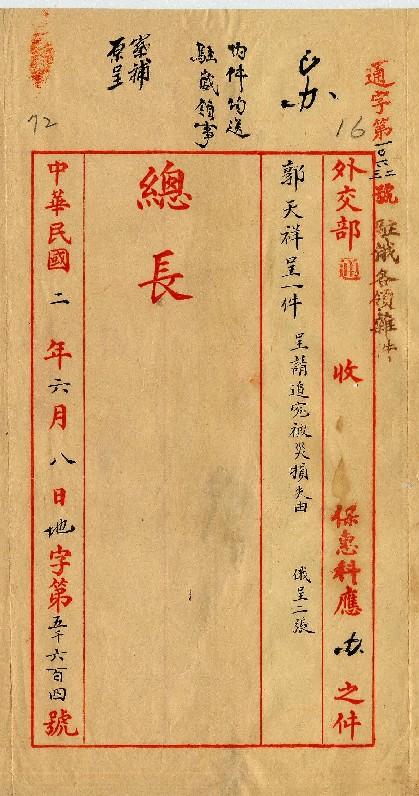 通字第一〇六三二號
駐俄各領雜件
已办
16
內件勿送
駐崴領事
原呈
72
外交部通 收 保惠科應办之件
郭天祥呈一件 呈請追究被災損失由 俄呈二張
總長
中華民國二年六月八日地字第五千六百四號